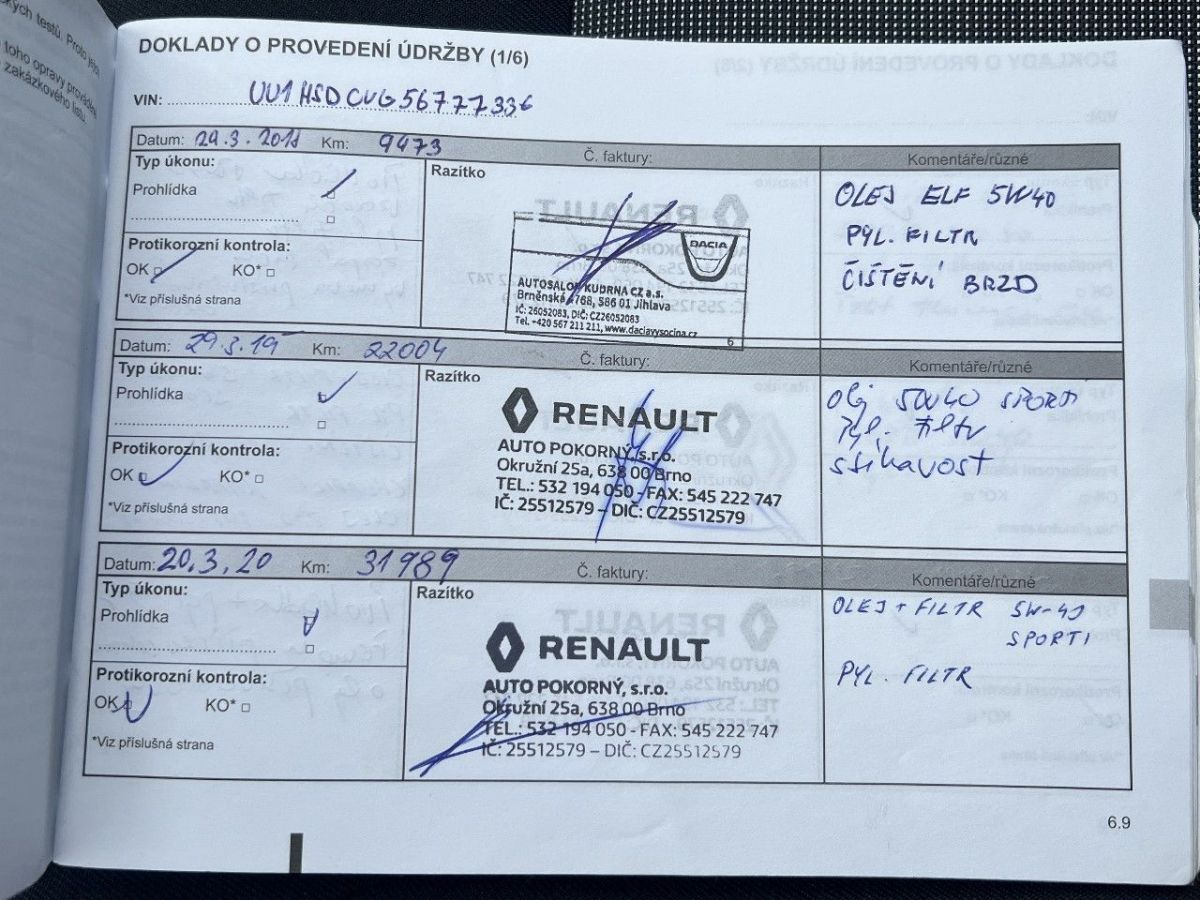 kých testů. Proto je
toho opravy provádě
zakázkového listu.
DOKLADY O PROVEDENÍ ÚDRŽBY (1/6)
VIN: UU1HSDCUG56777336
Datum: 29.3.2018 Km: 9473 Č. faktury: Komentáře/různé
Typ úkonu: Razítko
Prohlídka
Protikorozní kontrola:
OK KO*
*Viz příslušná strana
DACIA
AUTOSALON KUDRNA CZ a.s.
Brněnská 4768, 586 01 Jihlava
IČ: 26052083, DIČ: CZ26052083
Tel. +420 567 211 211, www.daciavysocina.cz
6
OLEJ ELF 5W40
PYL. FILTR
ČIŠTĚNÍ BRZD
Datum: 29.3.19 Km: 22004 Č. faktury: Komentáře/různé
Typ úkonu: Razítko
Prohlídka
Protikorozní kontrola:
OK KO*
*Viz příslušná strana
RENAULT
AUTO POKORNÝ, s.r.o.
Okružní 25a, 638 00 Brno
TEL.: 532 194 050 - FAX: 545 222 747
IČ: 25512579 – DIČ: CZ25512579
Olej 5W40 SPORTI
Pyl. Filtr
Datum: 20.3.20 Km: 31989 Č. faktury: Komentáře/různé
Typ úkonu: Razítko
Prohlídka
Protikorozní kontrola:
OK KO*
*Viz příslušná strana
RENAULT
AUTO POKORNÝ, s.r.o.
Okružní 25a, 638 00 Brno
TEL.: 532 194 050 - FAX: 545 222 747
IČ: 25512579 – DIČ: CZ25512579
OLEJ + FILTR 5W-40
SPORTI
PYL. FILTR
6.9